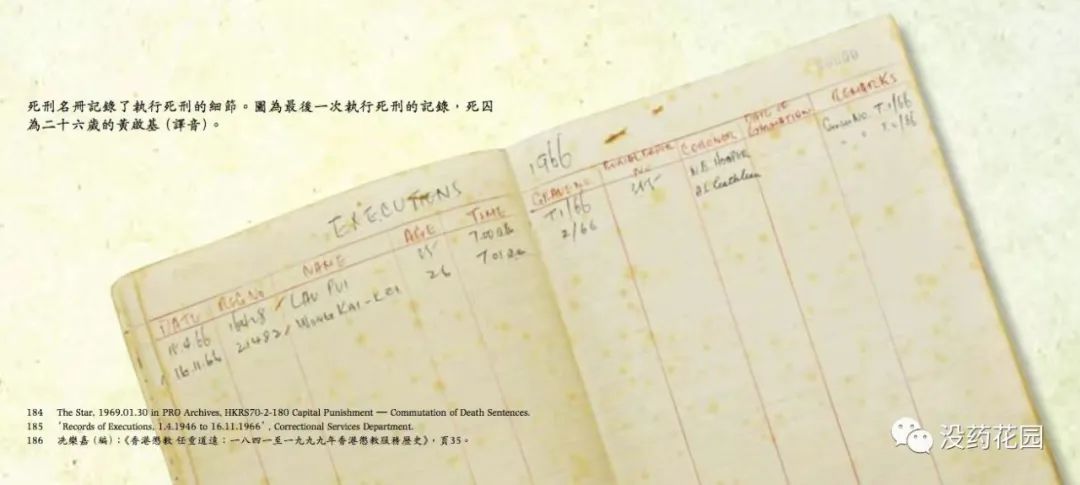 死刑名冊記錄了執行死刑的細節。圖為最後一次執行死刑的記錄，死囚
為二十六歲的黃啟基（譯音）。
EXECUTIONS
DATE REG NO NAME AGE TIME
LAU PUI 7.00
16.11.66 21482 WONG KAI-KEI 26 7.01
1966
GRAVE NO CORONER DATE OF REMARKS
T1/66
2/66
184 The Star, 1969.01.30 in PRO Archives, HKRS70-2-180 Capital Punishment — Commutation of Death Sentences.
185 'Records of Executions, 1.4.1946 to 16.11.1966', Correctional Services Department.
186 冼樂嘉（編）：《香港懲教 任重道遠：一八四一至一九九九年香港懲教服務歷史》，頁35。
没药花园